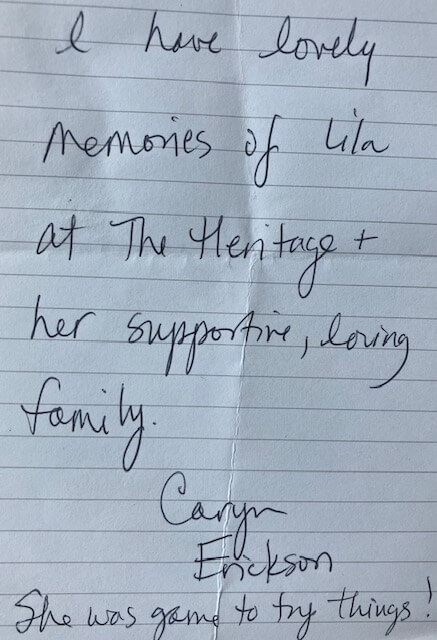 I have lovely
memories of Lila
at The Heritage +
her supportive, loving
family.
Caryn
Erickson
She was game to try things!